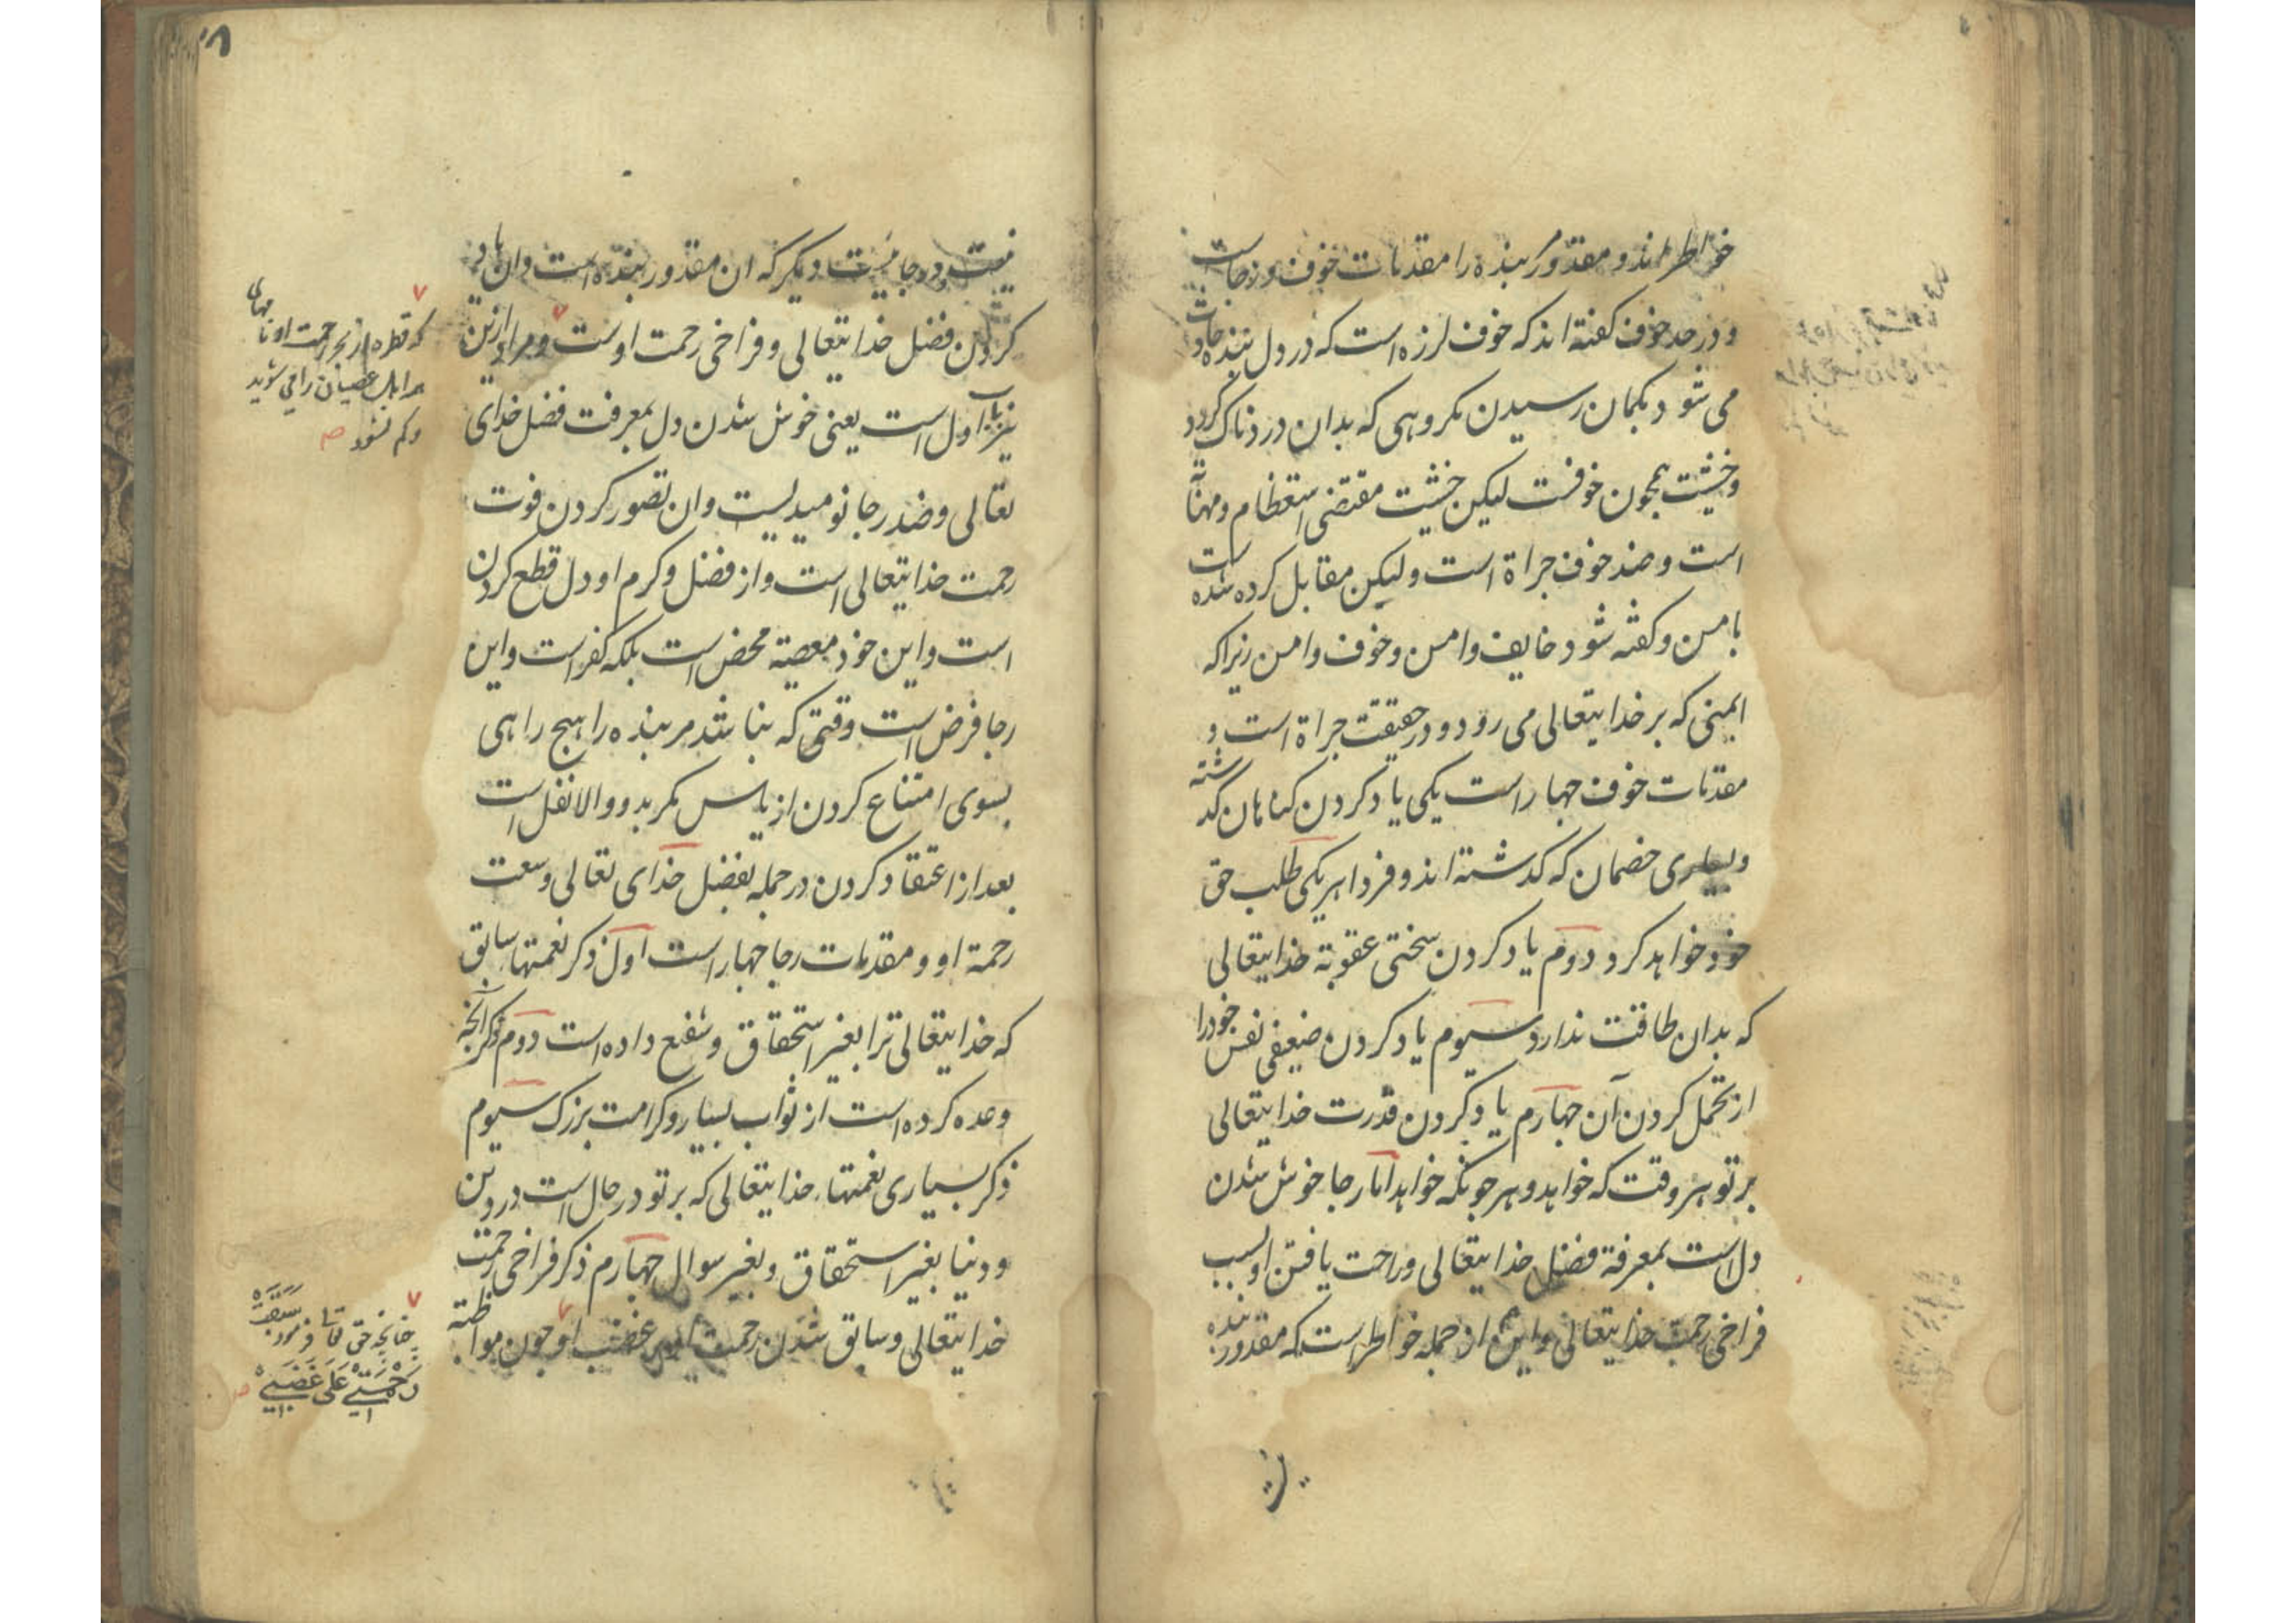 خواطراند و مقدور بنده را مقدمات خوف و رجاست
و در حد خوف کفته اند که خوف لرزه است که در دل بنده حادث
می شود بکمان رسیدن مکروهی که بدان دردناک کردد
و خشیت همچون خوفست لیکن خشیت مقتضی استعظام و مهابة
است و ضد خوف جراة است ولیکن مقابل کرده شده است
بامن و کفته شود خایف وامن و خوف وامن زیراکه
ایمنی که بر خدایتعالی می رود و در حقیقت جراة است و
مقدمات خوف چهار است یکی یاد کردن کناهان کذشته
و بسیاری خصمان که کذشته اند و فردا هر یکی طلب حق
خود خواهد کرد دوم یاد کردن سختی عقوبة خدایتعالی
که بدان طاقت ندارد سیوم یاد کردن ضعیفی نفس خود را
از تحمل کردن آن چهارم یاد کردن قدرت خدایتعالی
بر تو هر وقت که خواهد و هرچونکه خواهد اما رجا خوش شدن
دل است بمعرفة فضل خدایتعالی و راحت یافتن او بسبب
فراخی رحمت خدایتعالی و این از جمله خواطر است که مقدور بنده
نیست و رجائیست دیکر که ان مقدور بنده است و ان یاد
کردن فضل خدایتعالی و فراخی رحمت اوست و مراد ازین
نیز باب اول است یعنی خوش شدن دل بمعرفت فضل خدای
تعالی و ضد رجا نومیدیست و ان تصور کردن فوت
رحمت خدایتعالی است و از فضل و کرم او دل قطع کردن
است و این خود معصیة محض است بلکه کفر است و این
رجا فرض است وقتی که نباشد مر بنده را هیچ راهی
بسوی امتناع کردن از یاس مکر بدو والا نفل است
بعد از اعتقاد کردن در جمله بفضل خدای تعالی و سعت
رحمة او و مقدمات رجا چهار است اول ذکر نعمتهاء سابق
که خدایتعالی ترا بغیر استحقاق و شفیع داده است دوم ذکر آنچه
وعده کرده است از ثواب بسیار و کرامت بزرک سیوم
ذکر بسیاری نعمتهاء خدایتعالی که بر تو در حال است در دین
و دنیا بغیر استحقاق و بغیر سوال چهارم ذکر فراخی رحمت
خدایتعالی و سابق شدن رحمت او بر غضب او چون مواظبة
که قطره از بحر رحمت او تا منهای
مر اهل عصیان را می شوید
و کم نشود
چنانچه حق تعالی فرمود سَبَقَتْ
رَحْمَتِي عَلَى غَضَبِي